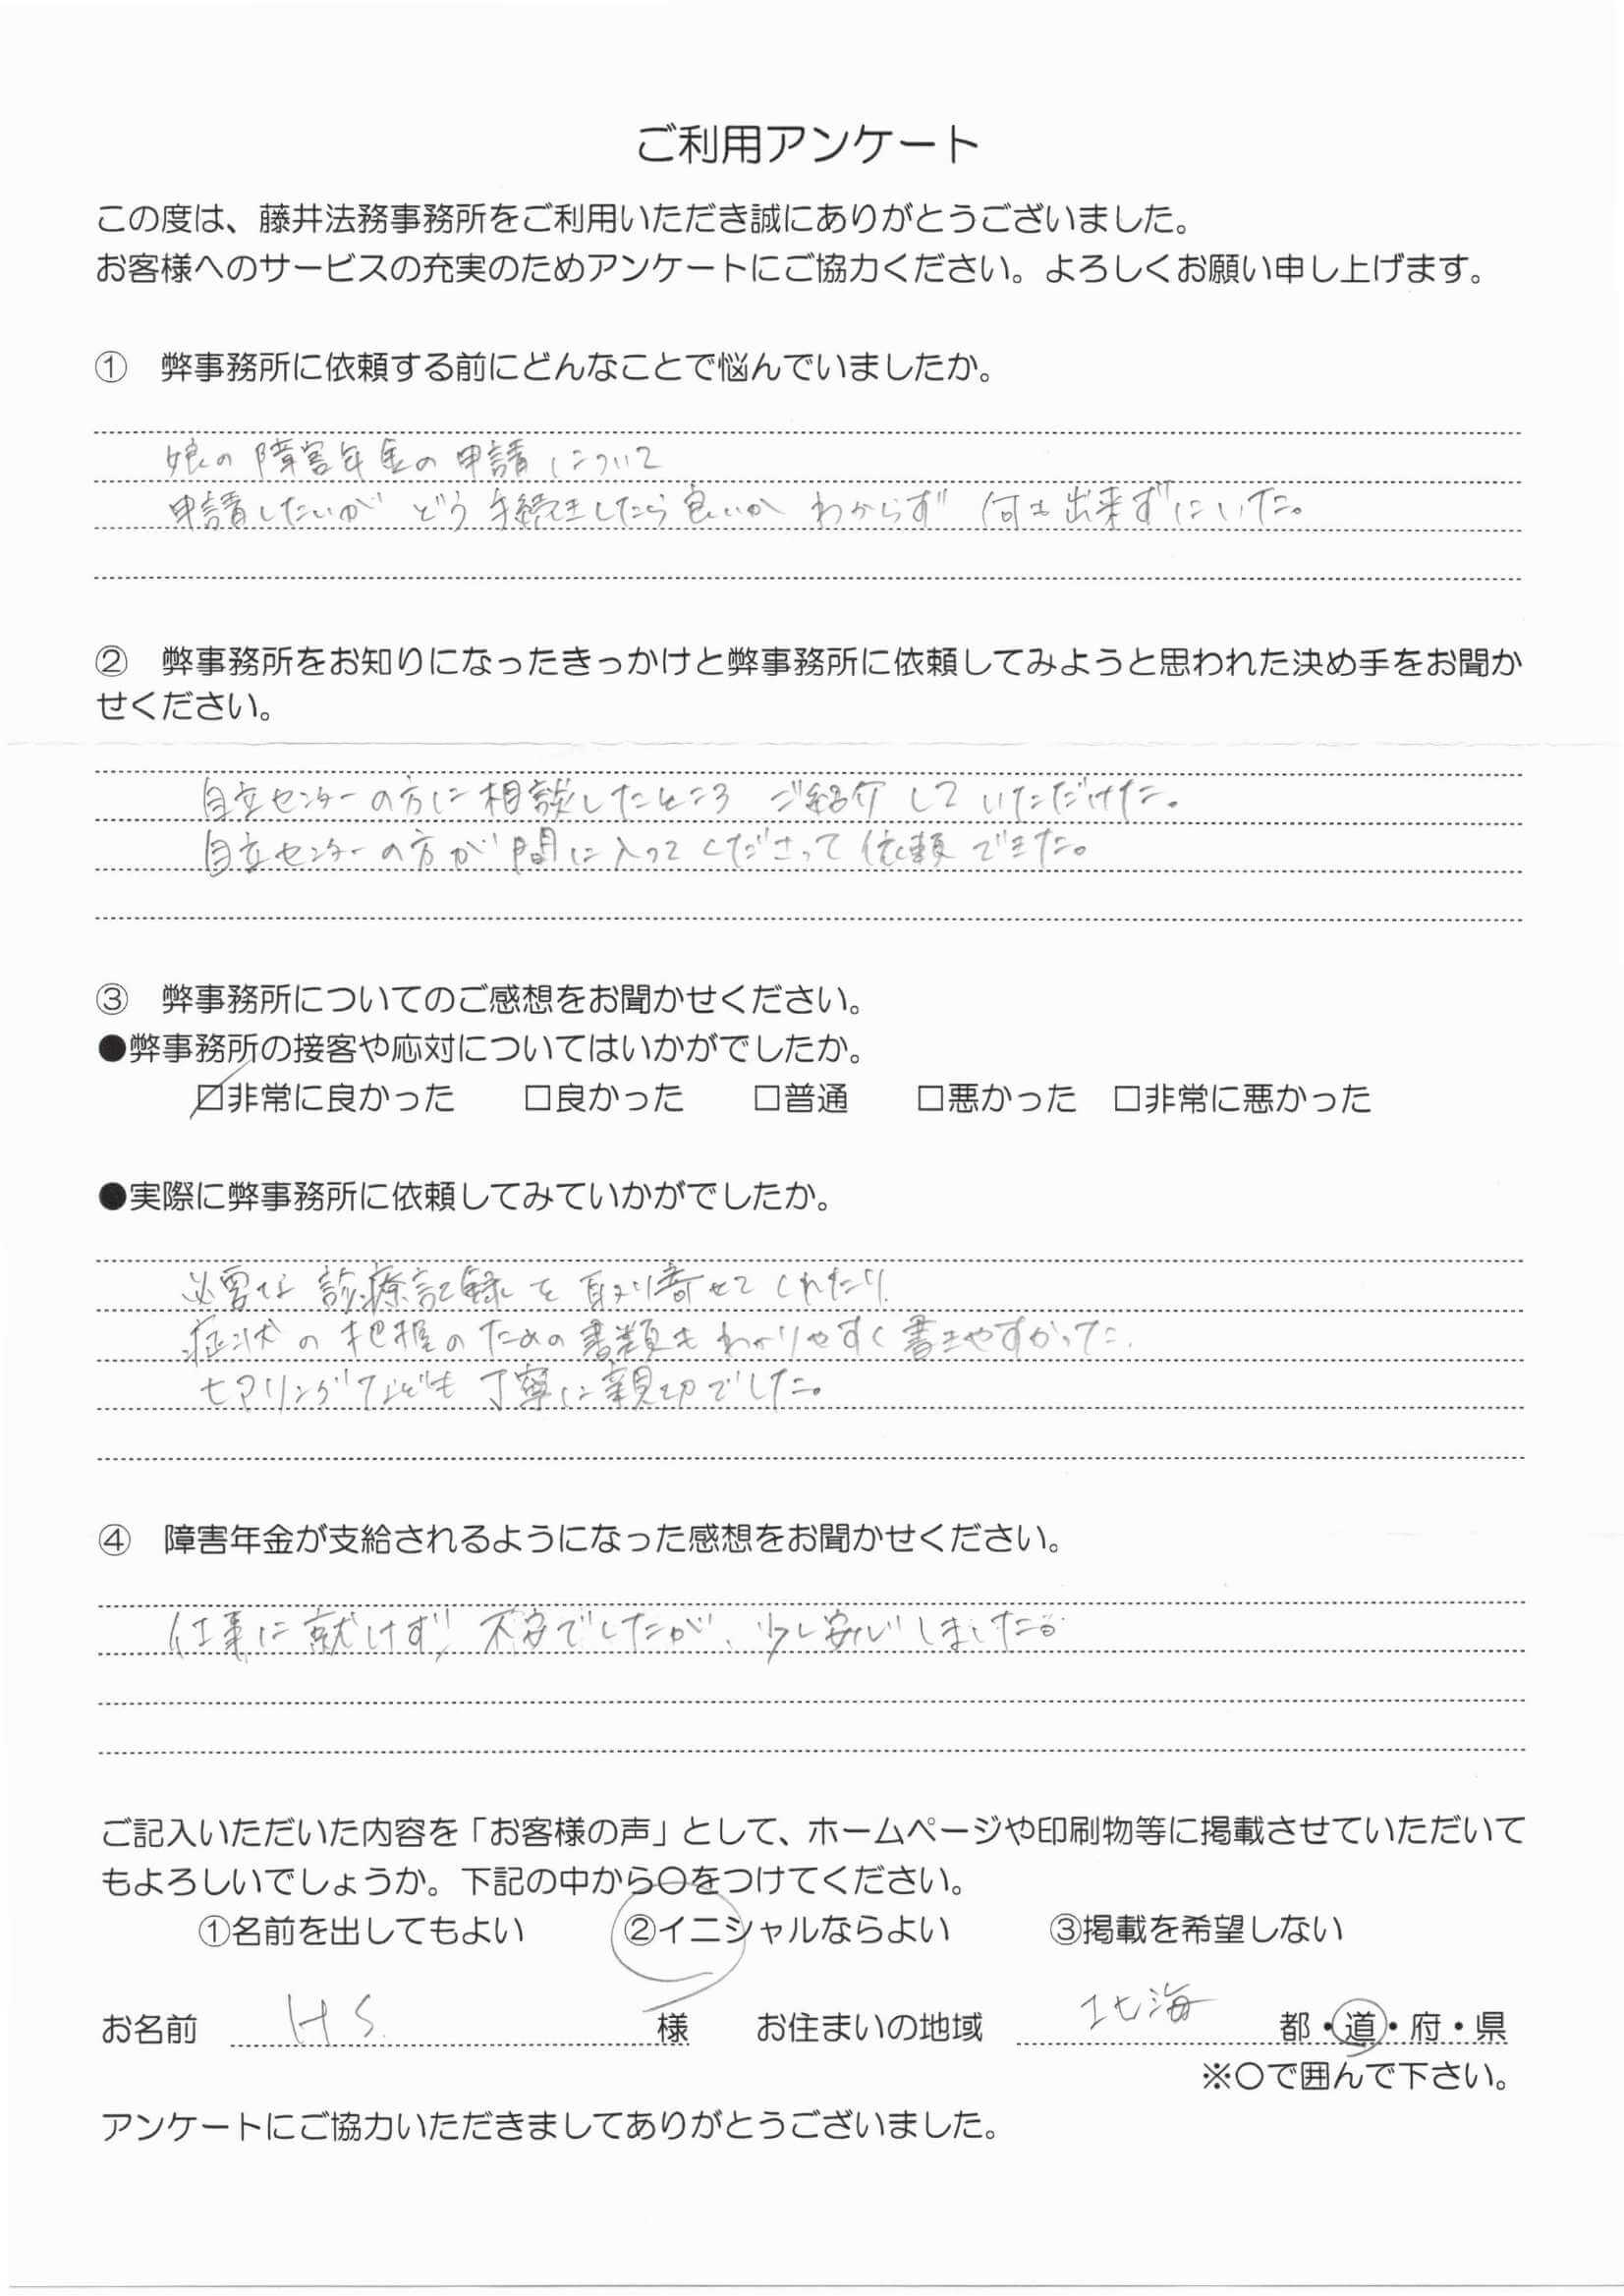 ご利用アンケート
この度は、藤井法務事務所をご利用いただき誠にありがとうございました。
お客様へのサービスの充実のためアンケートにご協力ください。よろしくお願い申し上げます。
① 弊事務所に依頼する前にどんなことで悩んでいましたか。
娘の障害年金の申請について
申請したいが どう手続きしたら良いか わからず 何も出来ずにいた。
② 弊事務所をお知りになったきっかけと弊事務所に依頼してみようと思われた決め手をお聞か
せください。
自立センターの方に相談したところ ご紹介して いただけた。
自立センターの方が間に入ってくださって依頼できた。
③ 弊事務所についてのご感想をお聞かせください。
●弊事務所の接客や応対についてはいかがでしたか。
☑非常に良かった □良かった □普通 □悪かった □非常に悪かった
●実際に弊事務所に依頼してみていかがでしたか。
必要な 診療記録を取り寄せてくれたり
症状の把握のための書類もわかりやすく書きやすかった
ヒアリングなども丁寧に親切でした。
④ 障害年金が支給されるようになった感想をお聞かせください。
仕事に就けず、不安でしたが、少し安心しました。
ご記入いただいた内容を「お客様の声」として、ホームページや印刷物等に掲載させていただいて
もよろしいでしょうか。下記の中から〇をつけてください。
①名前を出してもよい ②イニシャルならよい ③掲載を希望しない
お名前 H S. 様 お住まいの地域 北海 都・道・府・県
※〇で囲んで下さい。
アンケートにご協力いただきましてありがとうございました。